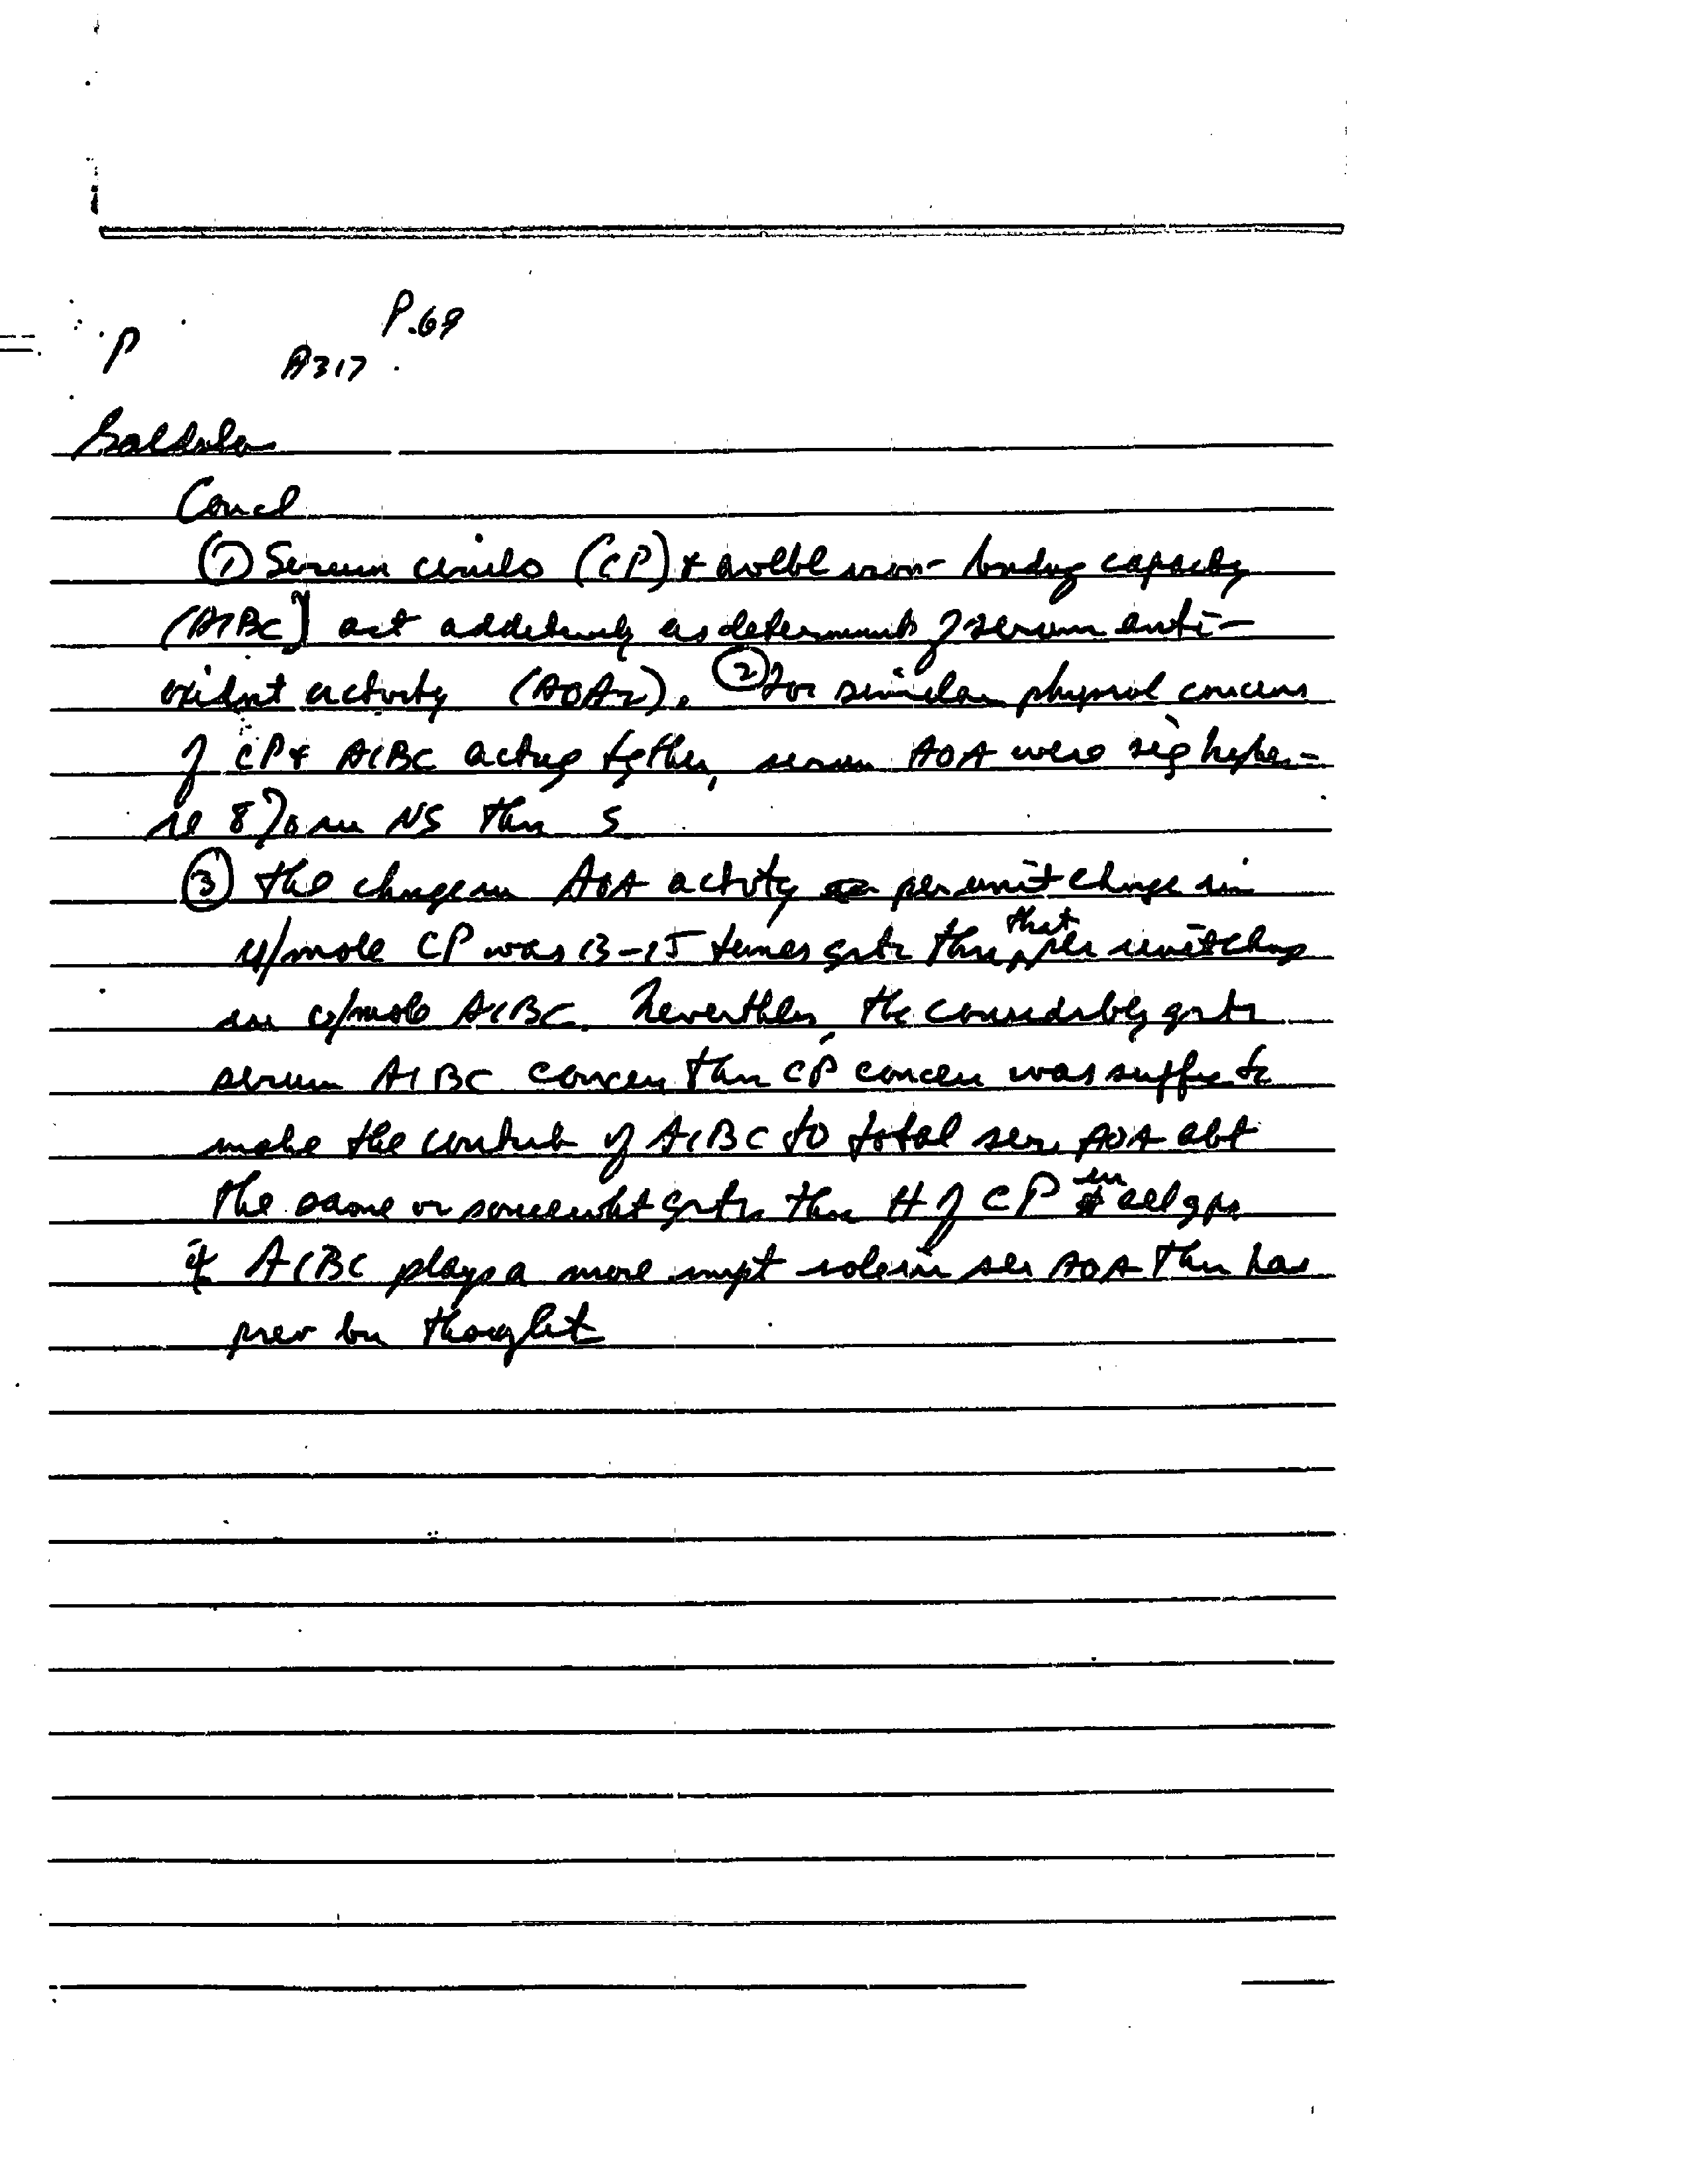 P.69
P
A317
Concl
① Serum cerulo (CP) + avlbl iron-bindng capacity
(AIBC) act additively as determinants of serum anti-
oxidnt activity (AOA). ② For similar physiol concens
of CP + AIBC acting tgther, serum AOA were sig higher-
ie 8% in NS than S
③ the change in AOA actvty per unit change in
u/mole CP was 13-15 times grtr than that per unit chng
in u/mole AIBC. Nevertheless, the considrbly grtr
serum AIBC concen than CP concen was suffic to
make the contrib of AIBC to total ser AOA abt
the same or somewht grtr than tt of CP in all gps
AIBC plays a more impt role in ser AOA than has
prev bn thought